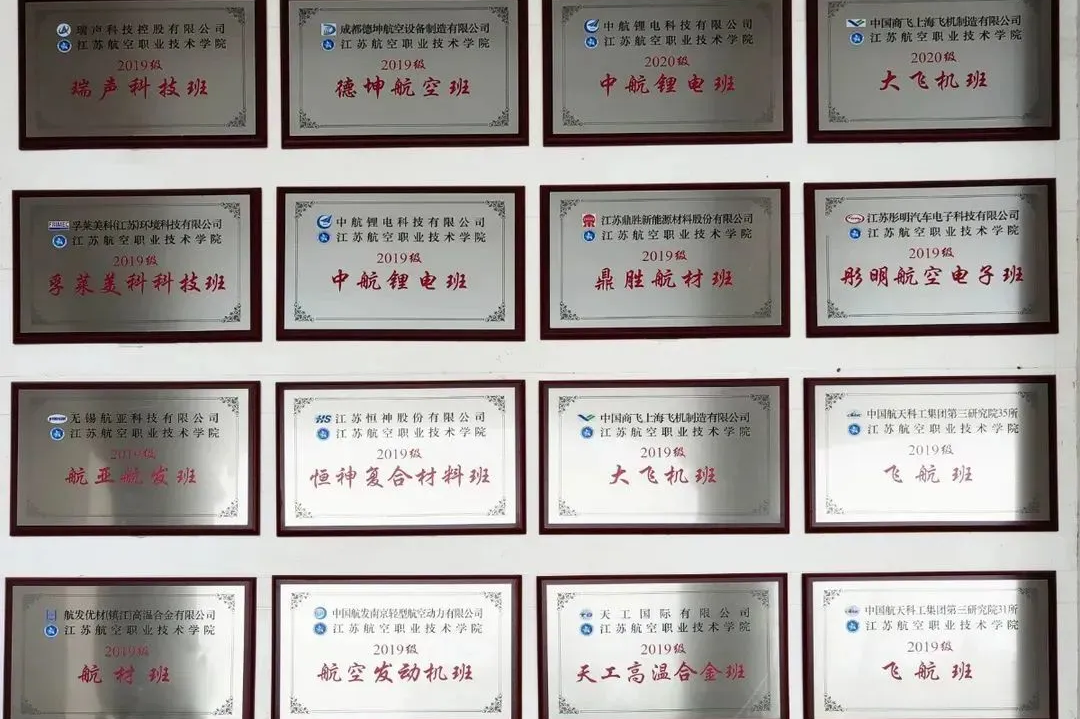 瑞声科技控股有限公司
江苏航空职业技术学院
2019级
瑞声科技班
成都德坤航空设备制造有限公司
江苏航空职业技术学院
2019级
德坤航空班
中航锂电科技有限公司
江苏航空职业技术学院
2020级
中航锂电班
中国商飞上海飞机制造有限公司
江苏航空职业技术学院
2020级
大飞机班
孚莱美科(江苏)环境科技有限公司
江苏航空职业技术学院
2019级
孚莱美科科技班
中航锂电科技有限公司
江苏航空职业技术学院
2019级
中航锂电班
江苏鼎胜新能源材料股份有限公司
江苏航空职业技术学院
2019级
鼎胜航材班
江苏彤明汽车电子科技有限公司
江苏航空职业技术学院
2019级
彤明航空电子班
无锡航亚科技有限公司
江苏航空职业技术学院
2019级
航亚航发班
HS 江苏恒神股份有限公司
江苏航空职业技术学院
2019级
恒神复合材料班
中国商飞上海飞机制造有限公司
江苏航空职业技术学院
2019级
大飞机班
中国航天科工集团第三研究院35所
江苏航空职业技术学院
2019级
飞航班
航发优材(镇江)高温合金有限公司
江苏航空职业技术学院
2019级
航材班
中国航发南京轻型航空动力有限公司
江苏航空职业技术学院
2019级
航空发动机班
天工国际有限公司
江苏航空职业技术学院
2019级
天工高温合金班
中国航天科工集团第三研究院31所
江苏航空职业技术学院
2019级
飞航班